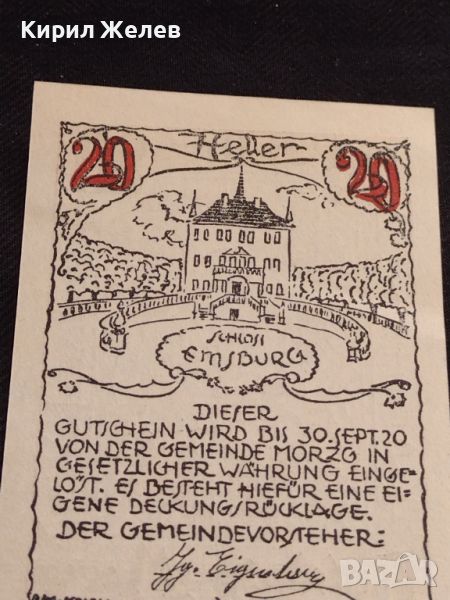 Кирил Желев
20 Heller 20
SCHLOSS
EMSBURG
DIESER
GUTSCHEIN WIRD BIS 30. SEPT. 20
VON DER GEMEINDE MORZG IN
GESETZLICHER WÄHRUNG EINGE-
LÖST. ES BESTEHT HIEFÜR EINE EI-
GENE DECKUNGSRÜCKLAGE.
DER GEMEINDEVORSTEHER:
BAZAR